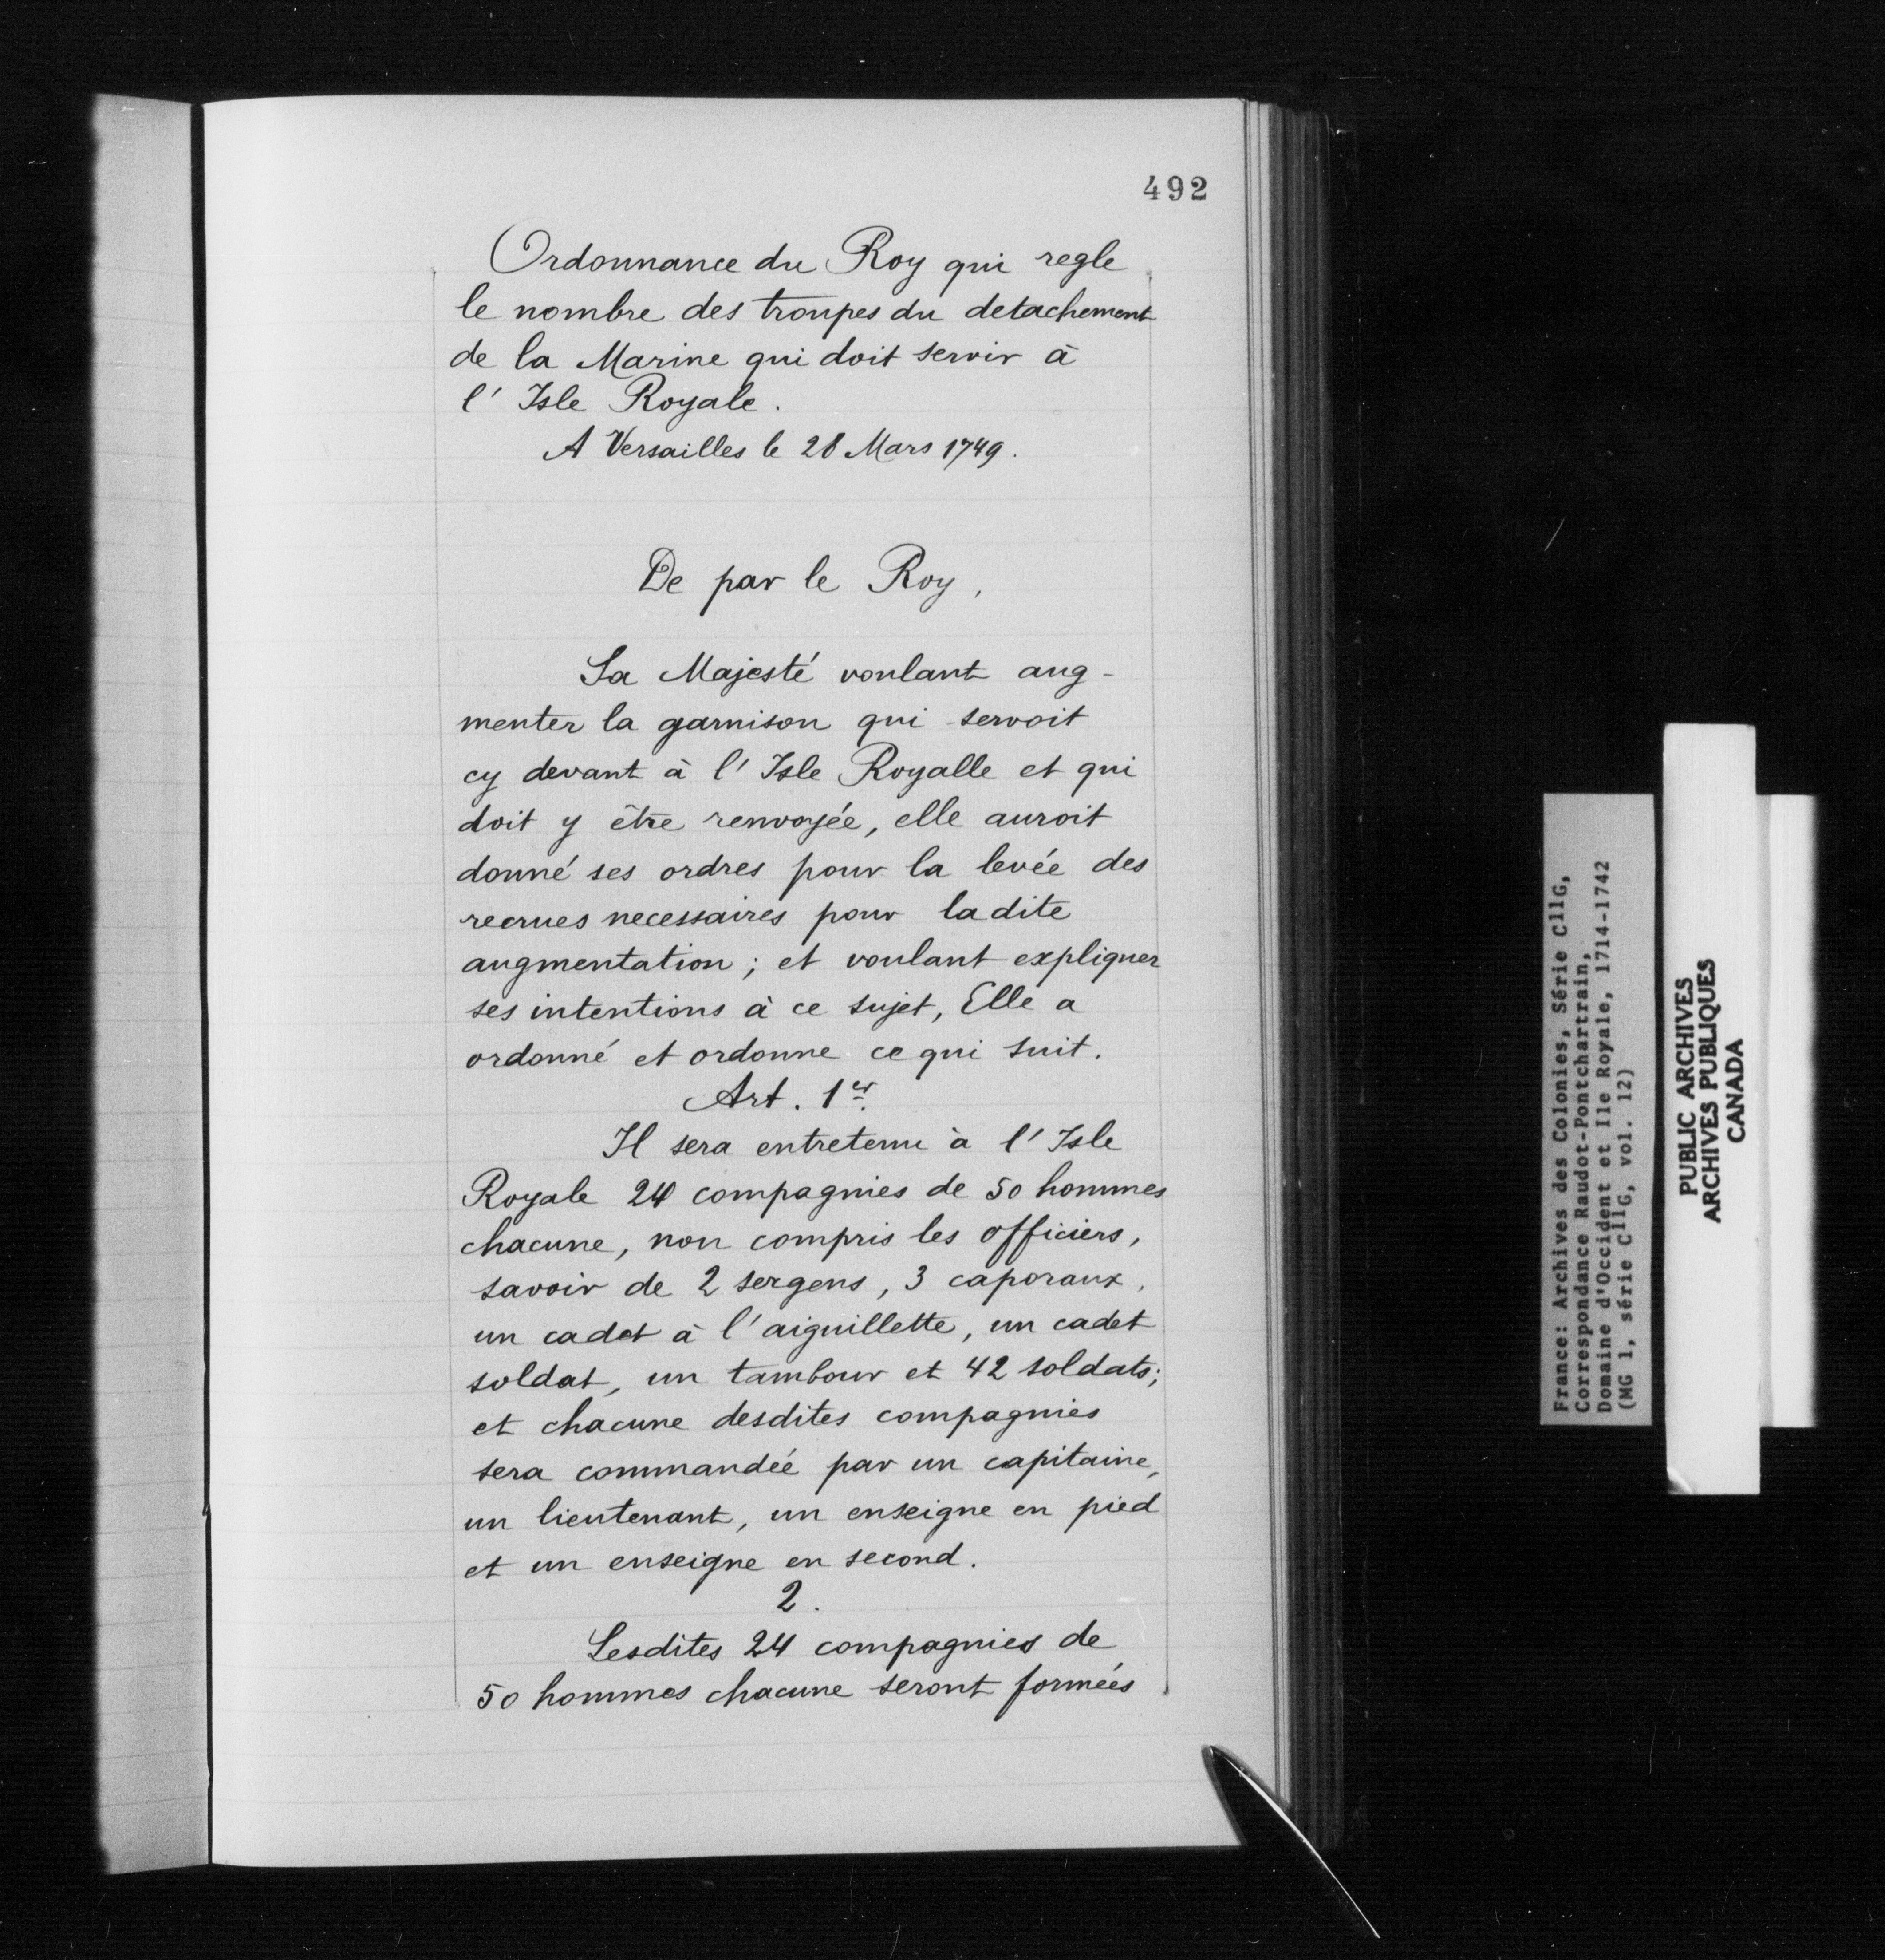 492
Ordonnance du Roy qui regle
le nombre des troupes du detachement
de la Marine qui doit servir à
l' Isle Royale.
A Versailles le 28 Mars 1749.
De par le Roy,
Sa Majesté voulant aug-
menter la garnison qui servoit
cy devant à l' Isle Royalle et qui
doit y être renvoyée, elle auroit
donné ses ordres pour la levée des
recrues necessaires pour ladite
augmentation; et voulant expliquer
ses intentions à ce sujet, Elle a
ordonné et ordonne ce qui suit.
Art. 1er.
Il sera entretenu à l' Isle
Royale 24 compagnies de 50 hommes
chacune, non compris les officiers,
savoir de 2 sergens, 3 caporaux,
un cadet à l'aiguillette, un cadet
soldat, un tambour et 42 soldats;
et chacune desdites compagnies
sera commandée par un capitaine,
un lieutenant, un enseigne en pied
et un enseigne en second.
2.
Lesdites 24 compagnies de
50 hommes chacune seront formées
France: Archives des Colonies, Série C11G,
Correspondance Raudot-Pontchartrain,
Domaine d'Occident et Ile Royale, 1714-1742
(MG 1, série C11G, vol. 12)
PUBLIC ARCHIVES
ARCHIVES PUBLIQUES
CANADA